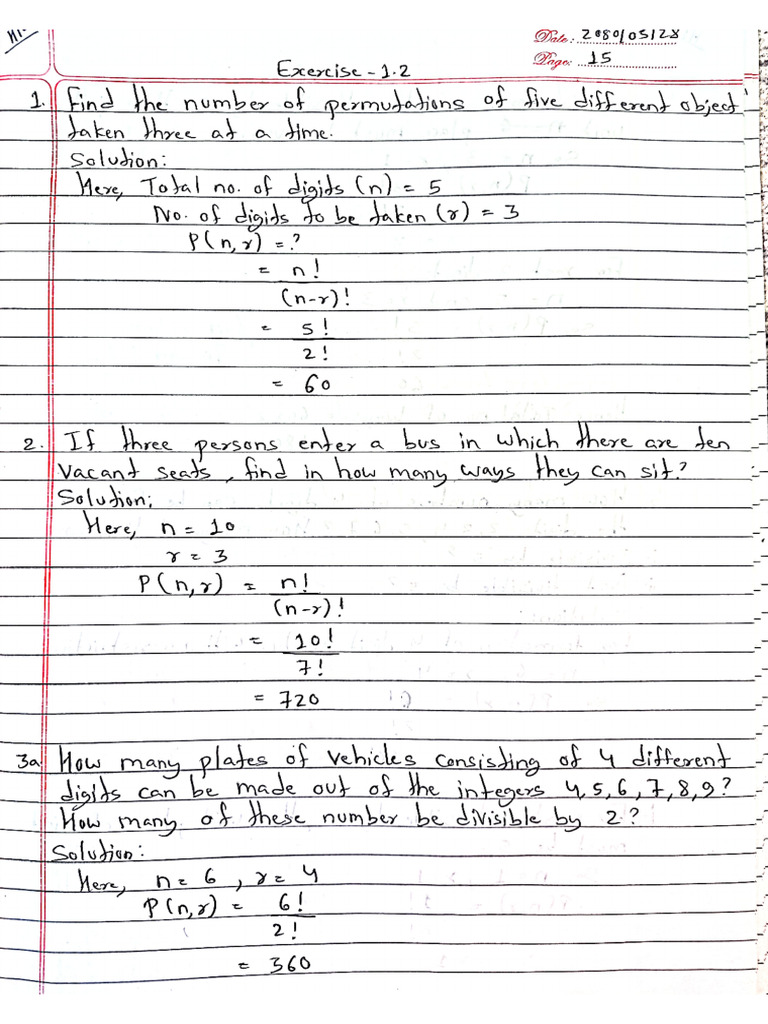 Date: 2080/05/28
Page: 15
Exercise - 1.2
1. Find the number of permutations of five different object
taken three at a time.
Solution:
Here, Total no. of digits (n) = 5
No. of digits to be taken (r) = 3
P(n,r) = ?
= n!
(n-r)!
= 5!
2!
= 60
2. If three persons enter a bus in which there are ten
vacant seats, find in how many ways they can sit?
Solution;
Here, n = 10
r = 3
P(n,r) = n!
(n-r)!
= 10!
7!
= 720
3a How many plates of vehicles consisting of 4 different
digits can be made out of the integers 4,5,6,7,8,9?
How many of these number be divisible by 2?
Solution:
Here, n = 6, r = 4
P(n,r) = 6!
2!
= 360